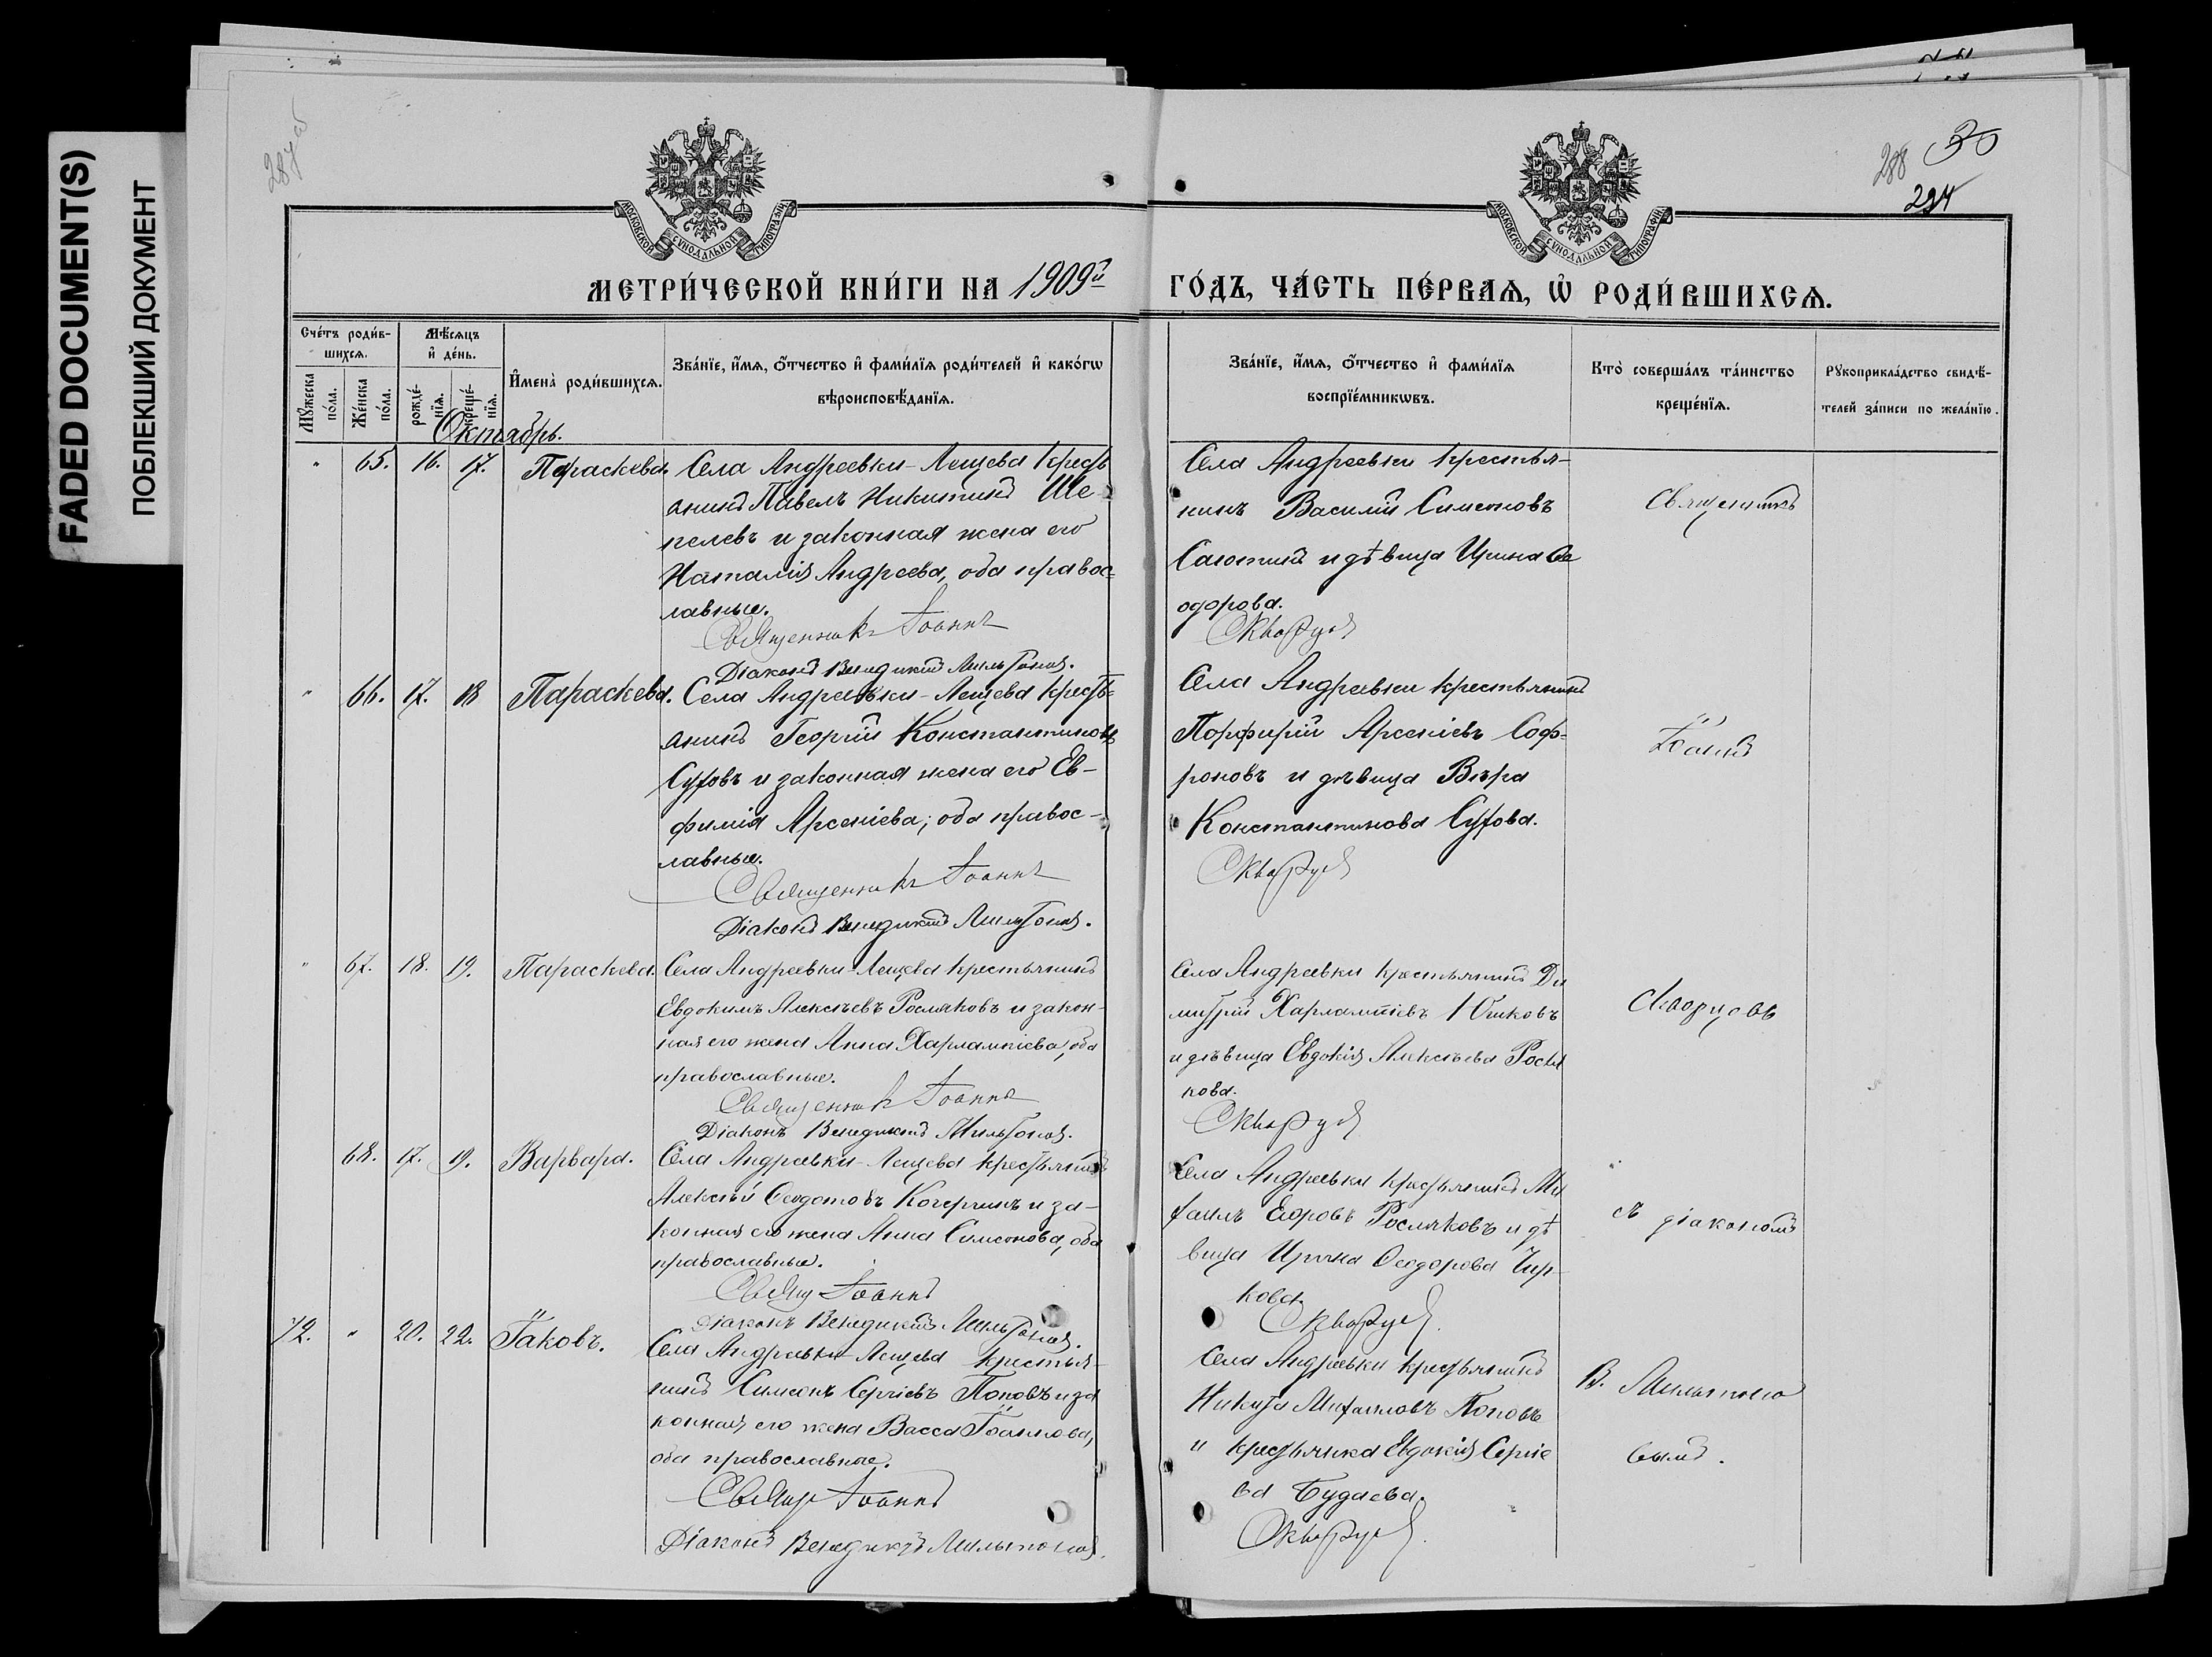 FADED DOCUMENT(S)
ПОБЛЕКШИЙ ДОКУМЕНТ
288
30
294
МОСКОВСКОЙ СѴНОДАЛЬНОЙ ТИПОГРАФІИ
МОСКОВСКОЙ СѴНОДАЛЬНОЙ ТИПОГРАФІИ
МЕТРИ́ЧЕСКОЙ КНИ́ГИ НА 1909й ГО́ДЪ, ЧА́СТЬ ПЕ́РВАѦ, Ѡ҆ РОДИ́ВШИХСѦ.
Сче́тъ роди́в-
шихсѧ.
Мѣ́сѧцъ
и҆ де́нь.
Мꙋ́жеска
по́ла.
Же́нска
по́ла.
рожде́-
нїѧ.
креще́-
нїѧ.
И҆мена̀ роди́вшихсѧ.
Зва́нїе, и҆́мѧ, ѻ҆́тчество и҆ фами́лїѧ роди́телей и҆ како́гѡ
вѣроисповѣ́данїѧ.
Зва́нїе, и҆́мѧ, ѻ҆́тчество и҆ фами́лїѧ
воспрїе́мникѡвъ.
Кто̀ соверша́лъ та́инство
креще́нїѧ.
Рꙋкоприкла́дство свидѣ́-
телей за́писи по жела́нїю.
Октябрь.
" 65. 16. 17. Параскева.
Села Андреевки-Лещева кресть
янинъ Павелъ Никитинъ Ше
пелевъ и законная жена его
Наталія Андреева, оба правос=
лавные.
Священникъ Іоаннъ
Діаконъ Венедиктъ Мильтоновъ.
Села Андреевки крестья-
нинъ Василій Симеоновъ
Саютинъ и дѣвица Ирина Ѳе
одорова.
Скворцовъ
Священникъ
" 66. 17. 18 Параскева.
Села Андреевки-Лещева кресть=
янинъ Георгій Константиновъ
Суховъ и законная жена его Ев-
фимія Арсеніева, оба правос-
лавные.
Священникъ Іоаннъ
Діаконъ Венедиктъ Мильтоновъ.
Села Андреевки крестьянинъ
Порфирій Арсеніевъ Соф=
роновъ и дѣвица Вѣра
Константинова Сухова.
Скворцовъ
Іоаннъ
" 67. 18. 19. Параскева.
Села Андреевки-Лещева крестьянинъ
Евдокимъ Алексѣевъ Росляковъ и закон-
ная его жена Анна Харлампіева, оба
православные.
Священникъ Іоаннъ
Діаконъ Венедиктъ Мильтоновъ.
Села Андреевки крестьянинъ Ди
митрій Харлампіевъ Юшковъ
и дѣвица Евдокія Алексѣева Росля
кова.
Скворцовъ
Скворцовъ
68. 17. 19. Варвара.
Села Андреевки-Лещева крестьянинъ
Алексѣй Ѳеодотовъ Кочергинъ и за-
конная его жена Анна Симеонова, оба
православные.
Свящ Іоаннъ
Діаконъ Венедиктъ Мильтоновъ.
Села Андреевки крестьянинъ Ми
хаилъ Егоровъ Росляковъ и дѣ
вица Ирина Ѳеодорова Чир-
кова.
Скворцовъ.
съ діакономъ
72. " 20. 22. Іаковъ.
Села Андреевки-Лещева крестья-
нинъ Симеонъ Сергіевъ Поповъ и за
конная его жена Васса Іоаннова,
оба православные.
Свящ Іоаннъ
Діаконъ Венедиктъ Мильтоновъ.
Села Андреевки крестьянинъ
Никита Михаиловъ Поповъ
и крестьянка Евдокія Сергіе
ва Будаева.
Скворцовъ.
В. Мильтоно
вымъ.